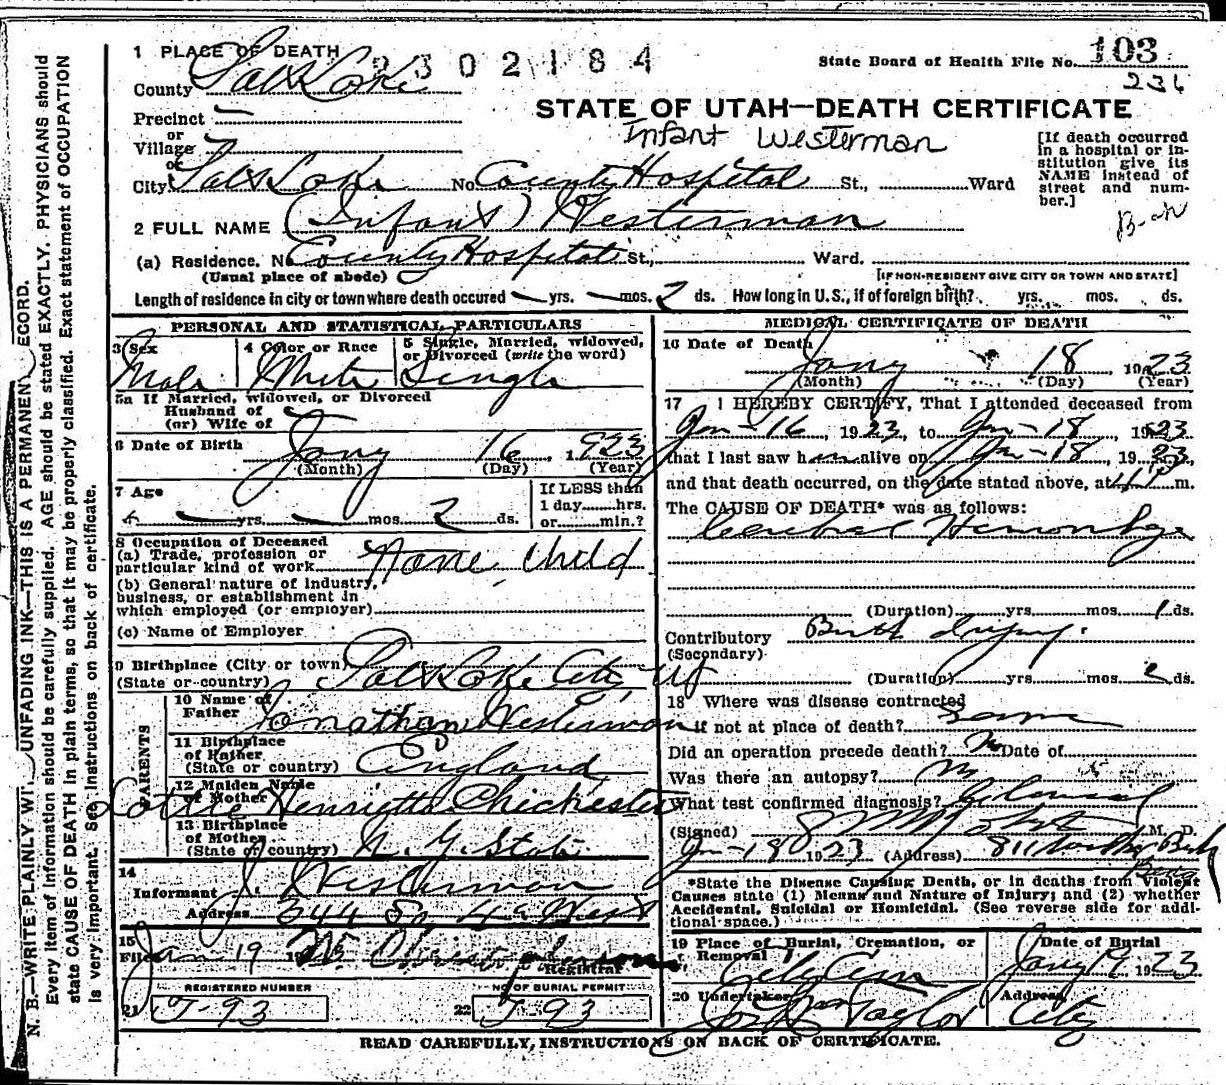 1 PLACE OF DEATH
2 3 0 2 1 8 4
State Board of Health File No. 103
236
County Salt Lake
STATE OF UTAH—DEATH CERTIFICATE
Precinct —
or
Village —
or
Infant Westerman
[If death occurred in a hospital or institution give its NAME instead of street and number.]
City Salt Lake No. County Hospital St., Ward
2 FULL NAME (Infant) Westerman
(a) Residence. No County Hospital St., Ward.
(Usual place of abode)
[IF NON-RESIDENT GIVE CITY OR TOWN AND STATE]
Length of residence in city or town where death occured — yrs. — mos. 2 ds. How long in U.S., if of foreign birth? yrs. mos. ds.
PERSONAL AND STATISTICAL PARTICULARS
3 Sex
Male
4 Color or Race
White
5 Single, Married, widowed, or Divorced (write the word)
Single
5a If Married, widowed, or Divorced
Husband of
(or) Wife of
6 Date of Birth Jany 16, 1923
(Month) (Day) (Year)
7 Age
— yrs. — mos. 2 ds.
If LESS than
1 day hrs.
or min.?
8 Occupation of Deceased
(a) Trade, profession or
particular kind of work None, Child
(b) General nature of industry,
business, or establishment in
which employed (or employer)
(c) Name of Employer
9 Birthplace (City or town)
(State or country) Salt Lake City, Ut
PARENTS
10 Name of
Father Jonathan Westerman
11 Birthplace
of Father
(State or country) England
12 Maiden Name
of Mother Lottie Henrietta Chichester
13 Birthplace
of Mother
(State or country) N. Y. State
14
Informant J. Westerman
Address 344 So 4th West
15
Filed Jan 19
Registrar
REGISTERED NUMBER
21 J-93
NO OF BURIAL PERMIT
22 J 93
MEDICAL CERTIFICATE OF DEATH
16 Date of Death
Jany 18 1923
(Month) (Day) (Year)
17 I HEREBY CERTIFY, That I attended deceased from
Jan-16, 1923, to Jan-18 1923
that I last saw him alive on Jan-18, 1923,
and that death occurred, on the date stated above, at m.
The CAUSE OF DEATH* was as follows:
Cerebral Hemorrhage
(Duration) yrs. mos. 1 ds.
Contributory Birth Injury.
(Secondary)
(Duration) yrs. mos. 2 ds.
18 Where was disease contracted
if not at place of death? Same
Did an operation precede death? No Date of
Was there an autopsy? No
What test confirmed diagnosis? Clinical
(Signed) M. D.
Jan-18 1923 (Address)
*State the Disease Causing Death, or in deaths from Violent
Causes state (1) Means and Nature of Injury; and (2) whether
Accidental, Suicidal or Homicidal. (See reverse side for addi-
tional space.)
19 Place of Burial, Cremation, or
Removal City Cem
Date of Burial
Jany 19 1923
20 Undertaker Jos Taylor
Address
City
READ CAREFULLY, INSTRUCTIONS ON BACK OF CERTIFICATE.
N. B.—WRITE PLAINLY WITH UNFADING INK—THIS IS A PERMANENT RECORD.
Every item of information should be carefully supplied. AGE should be stated EXACTLY. PHYSICIANS should
state CAUSE OF DEATH in plain terms, so that it may be properly classified. Exact statement of OCCUPATION
is very important. See instructions on back of certificate.